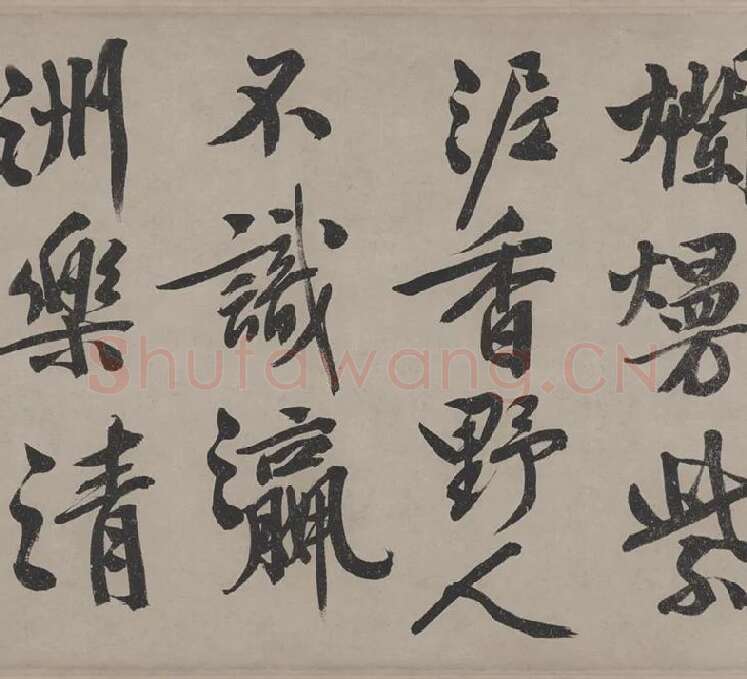 爛熳紫
泥香野人
不識瀛
洲樂清
Shufawang.CN